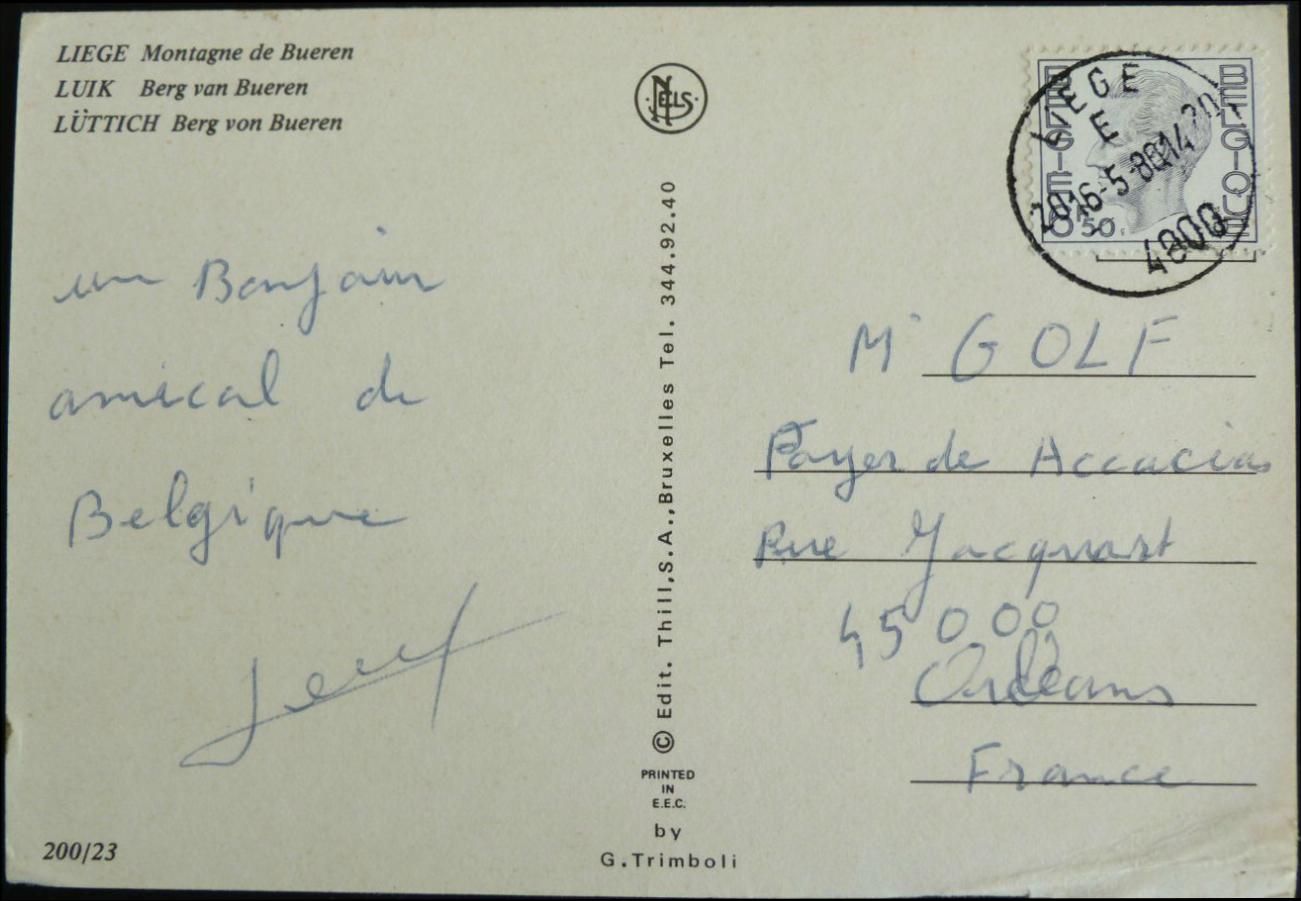 LIEGE Montagne de Bueren
LUIK Berg van Bueren
LÜTTICH Berg von Bueren
NELS
BELGIE
BELGIQUE
50
LIEGE
E
16-5-80
4000
un Bonjour
amical de
Belgique
200/23
© Edit. Thill, S.A., Bruxelles Tel. 344.92.40
PRINTED
IN
E.E.C.
by
G. Trimboli
Mr GOLF
Foyer de Accacias
Rue Jacquart
45000
Orléans
France